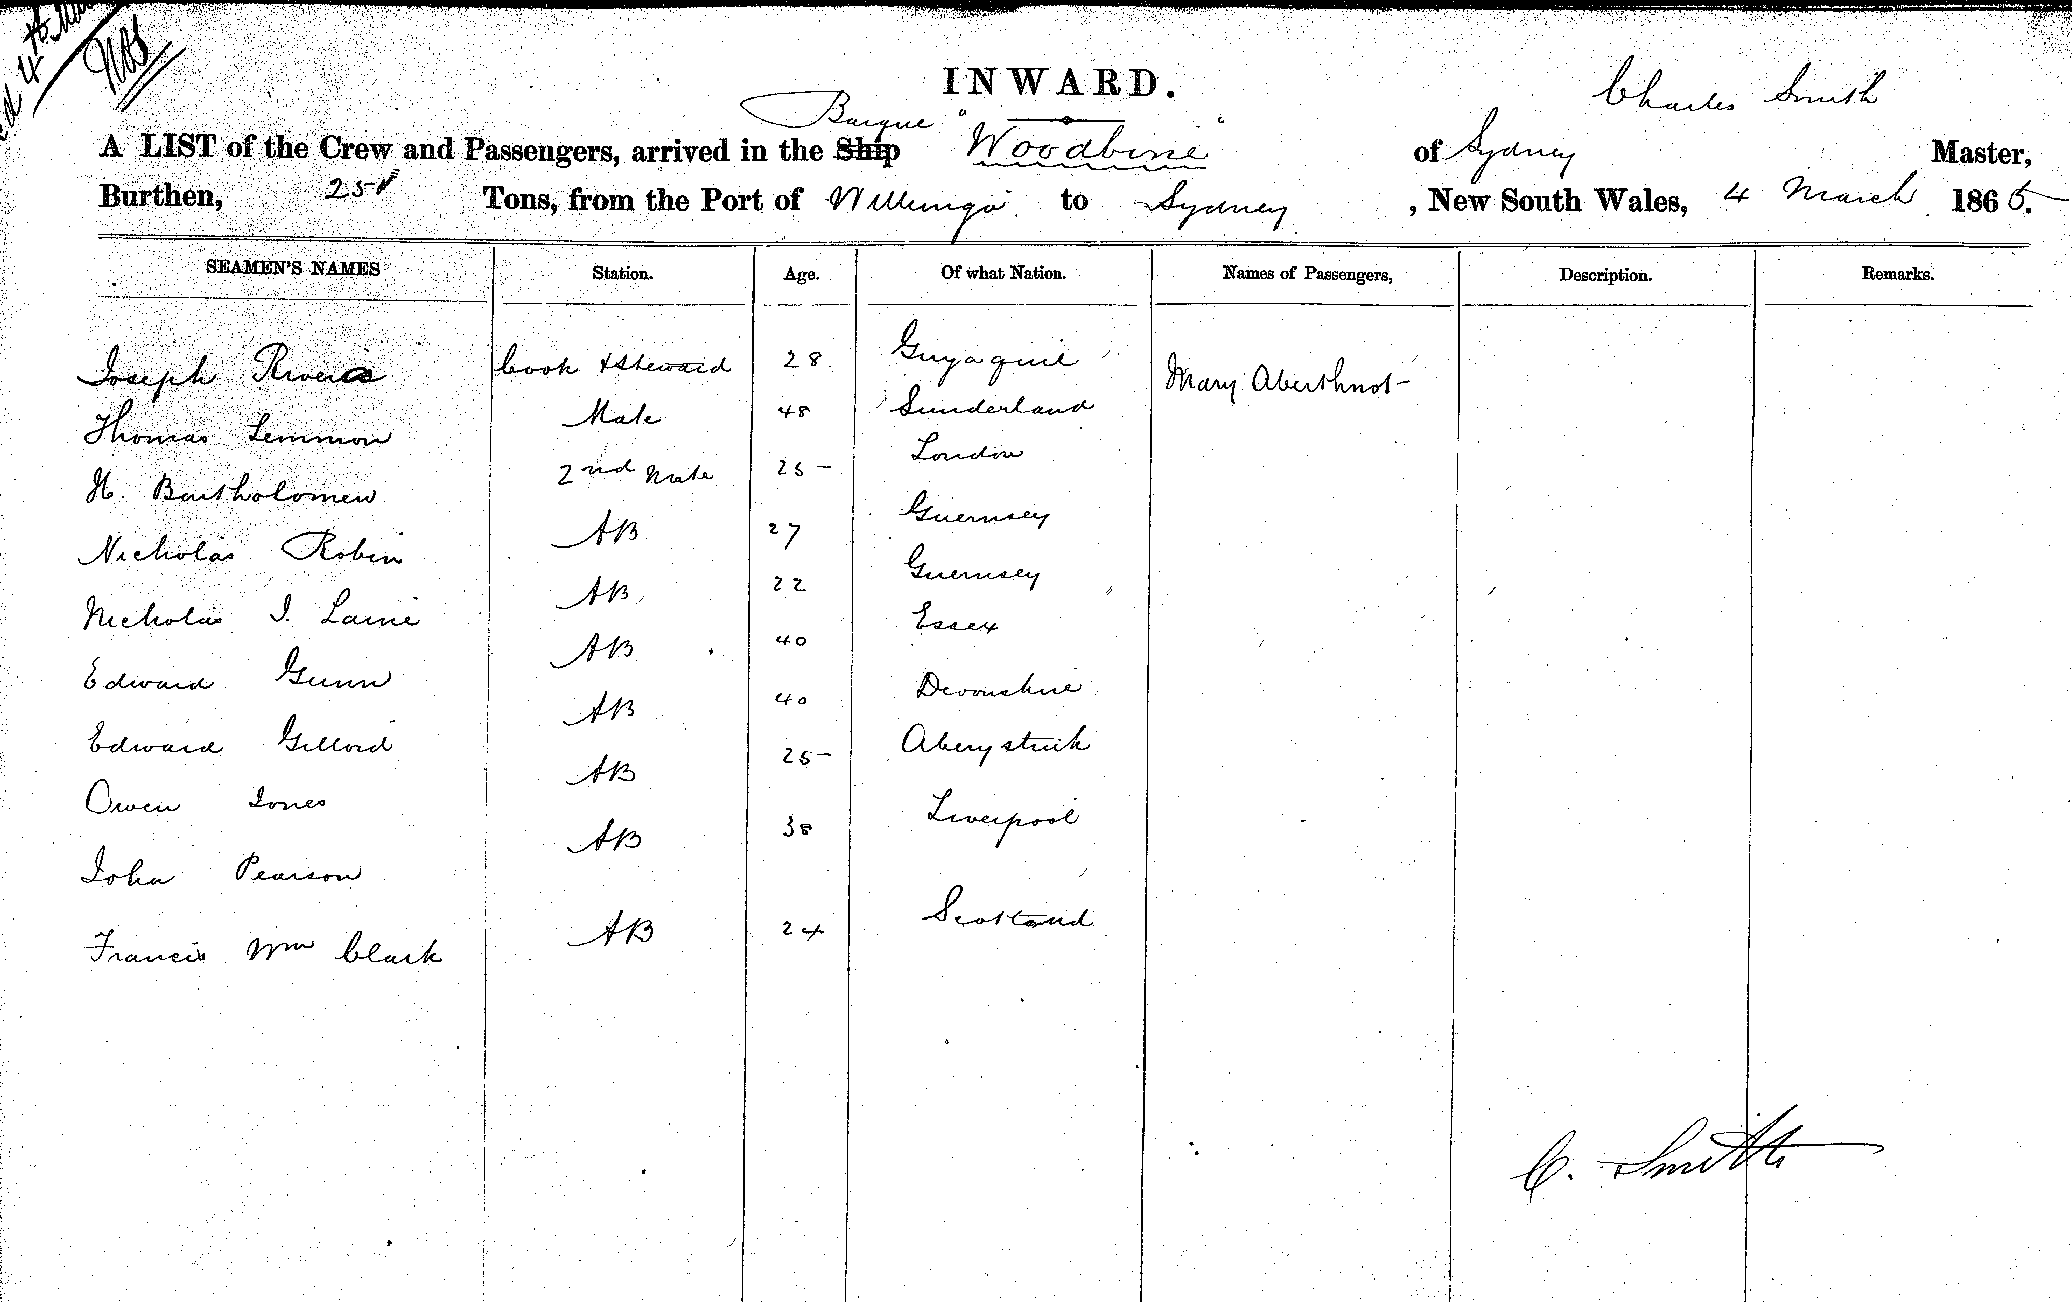 4th Mar
INWARD.
Charles Smith
Barque
A LIST of the Crew and Passengers, arrived in the Ship "Woodbine" of Sydney Master,
Burthen, 251 Tons, from the Port of Willunga to Sydney, New South Wales, 4 March 1865.
SEAMEN'S NAMES Station. Age. Of what Nation. Names of Passengers, Description. Remarks.
Joseph Cook & Steward 28 Guyaquil Mary Aberthnot
Thomas Lemmon Mate 48 Sunderland
H. Bartholomew 2nd Mate 25 London
Nicholas Robin AB 27 Guernsey
Nicholas I. Laine AB 22 Guernsey
Edward Gunn AB 40 Essex
Edward Gillord AB 40 Devonshire
Owen Jones AB 25 Aberystuih
John Pearson AB 38 Liverpool
Francis Wm Clark AB 24 Scotland
C. Smith